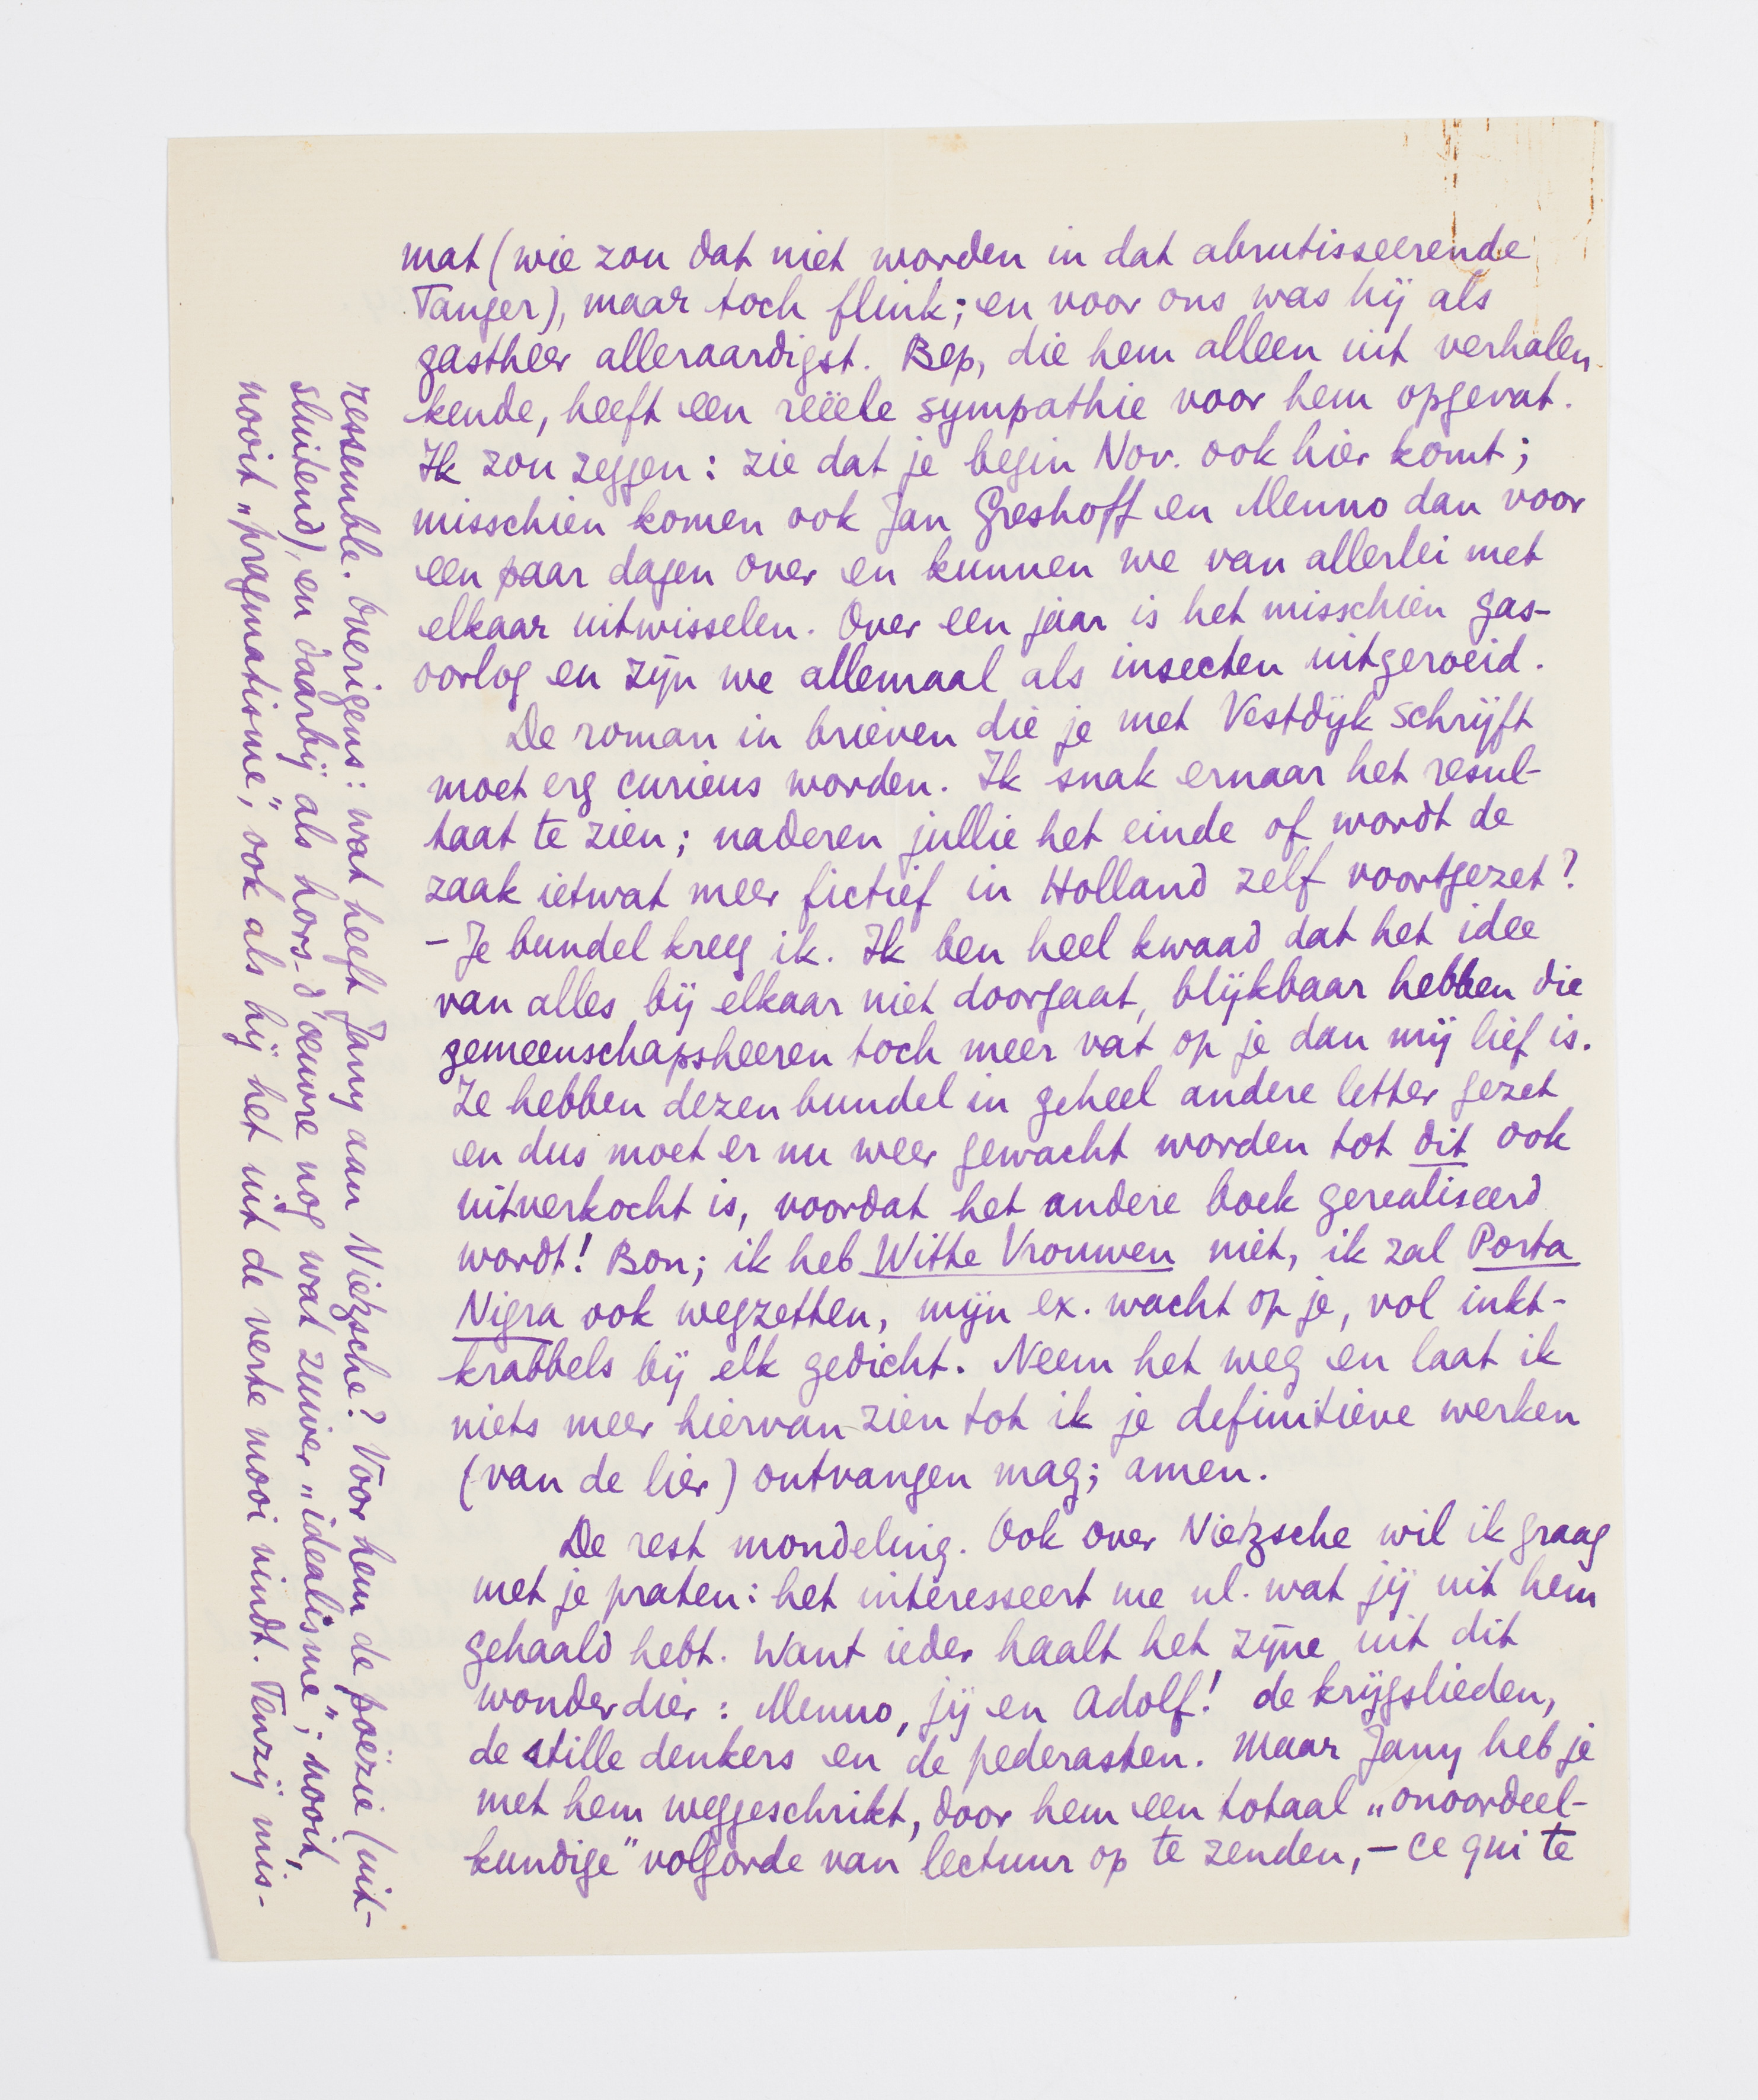 mat (wie zou dat niet worden in dat abrutisseerende
Tanger), maar toch flink; en voor ons was hij als
gastheer alleraardigst. Bep, die hem alleen uit verhalen
kende, heeft een reëele sympathie voor hem opgevat.
Ik zou zeggen: zie dat je begin Nov. ook hier komt;
misschien komen ook Jan Greshoff en Menno dan voor
een paar dagen over en kunnen we van allerlei met
elkaar uitwisselen. Over een jaar is het misschien gas-
oorlog en zijn we allemaal als insecten uitgeroeid.
De roman in brieven die je met Vestdijk schrijft
moet erg curieus worden. Ik snak ernaar het resul-
taat te zien; naderen jullie het einde of wordt de
zaak ietwat meer fictief in Holland zelf voortgezet?
- Je bundel kreeg ik. Ik ben heel kwaad dat het idee
van alles bij elkaar niet doorgaat, blijkbaar hebben die
gemeenschapsheeren toch meer vat op je dan mij lief is.
Ze hebben dezen bundel in geheel andere letter gezet
en dus moet er nu weer gewacht worden tot dit ook
uitverkocht is, voordat het andere boek gerealiseerd
wordt! Bon; ik heb Witte Vrouwen niet, ik zal Porta
Nigra ook wegzetten, mijn ex. wacht op je, vol inkt-
krabbels bij elk gedicht. Neem het weg en laat ik
niets meer hiervan zien tot ik je definitieve werken
(van de lier) ontvangen mag; amen.
De rest mondeling. Ook over Nietzsche wil ik graag
met je praten: het interesseert me nl. wat jij uit hem
gehaald hebt. Want ieder haalt het zijne uit dit
wonderdier: Menno, jij en Adolf! de krijgslieden,
de stille denkers en de pederasten. Maar Jany heb je
met hem weggeschrikt, door hem een totaal „onoordeel-
kundige" volgorde van lectuur op te zenden, - ce qui te
ressemble. Overigens: wat heeft Jany aan Nietzsche? Voor hem de poëzie (uit-
sluitend), en daarbij als hors-d'oeuvre nog wat zuiver „idealisme"; nooit,
nooit „pragmatisme", ook als hij het uit de verte mooi vindt. Tenzij mis-